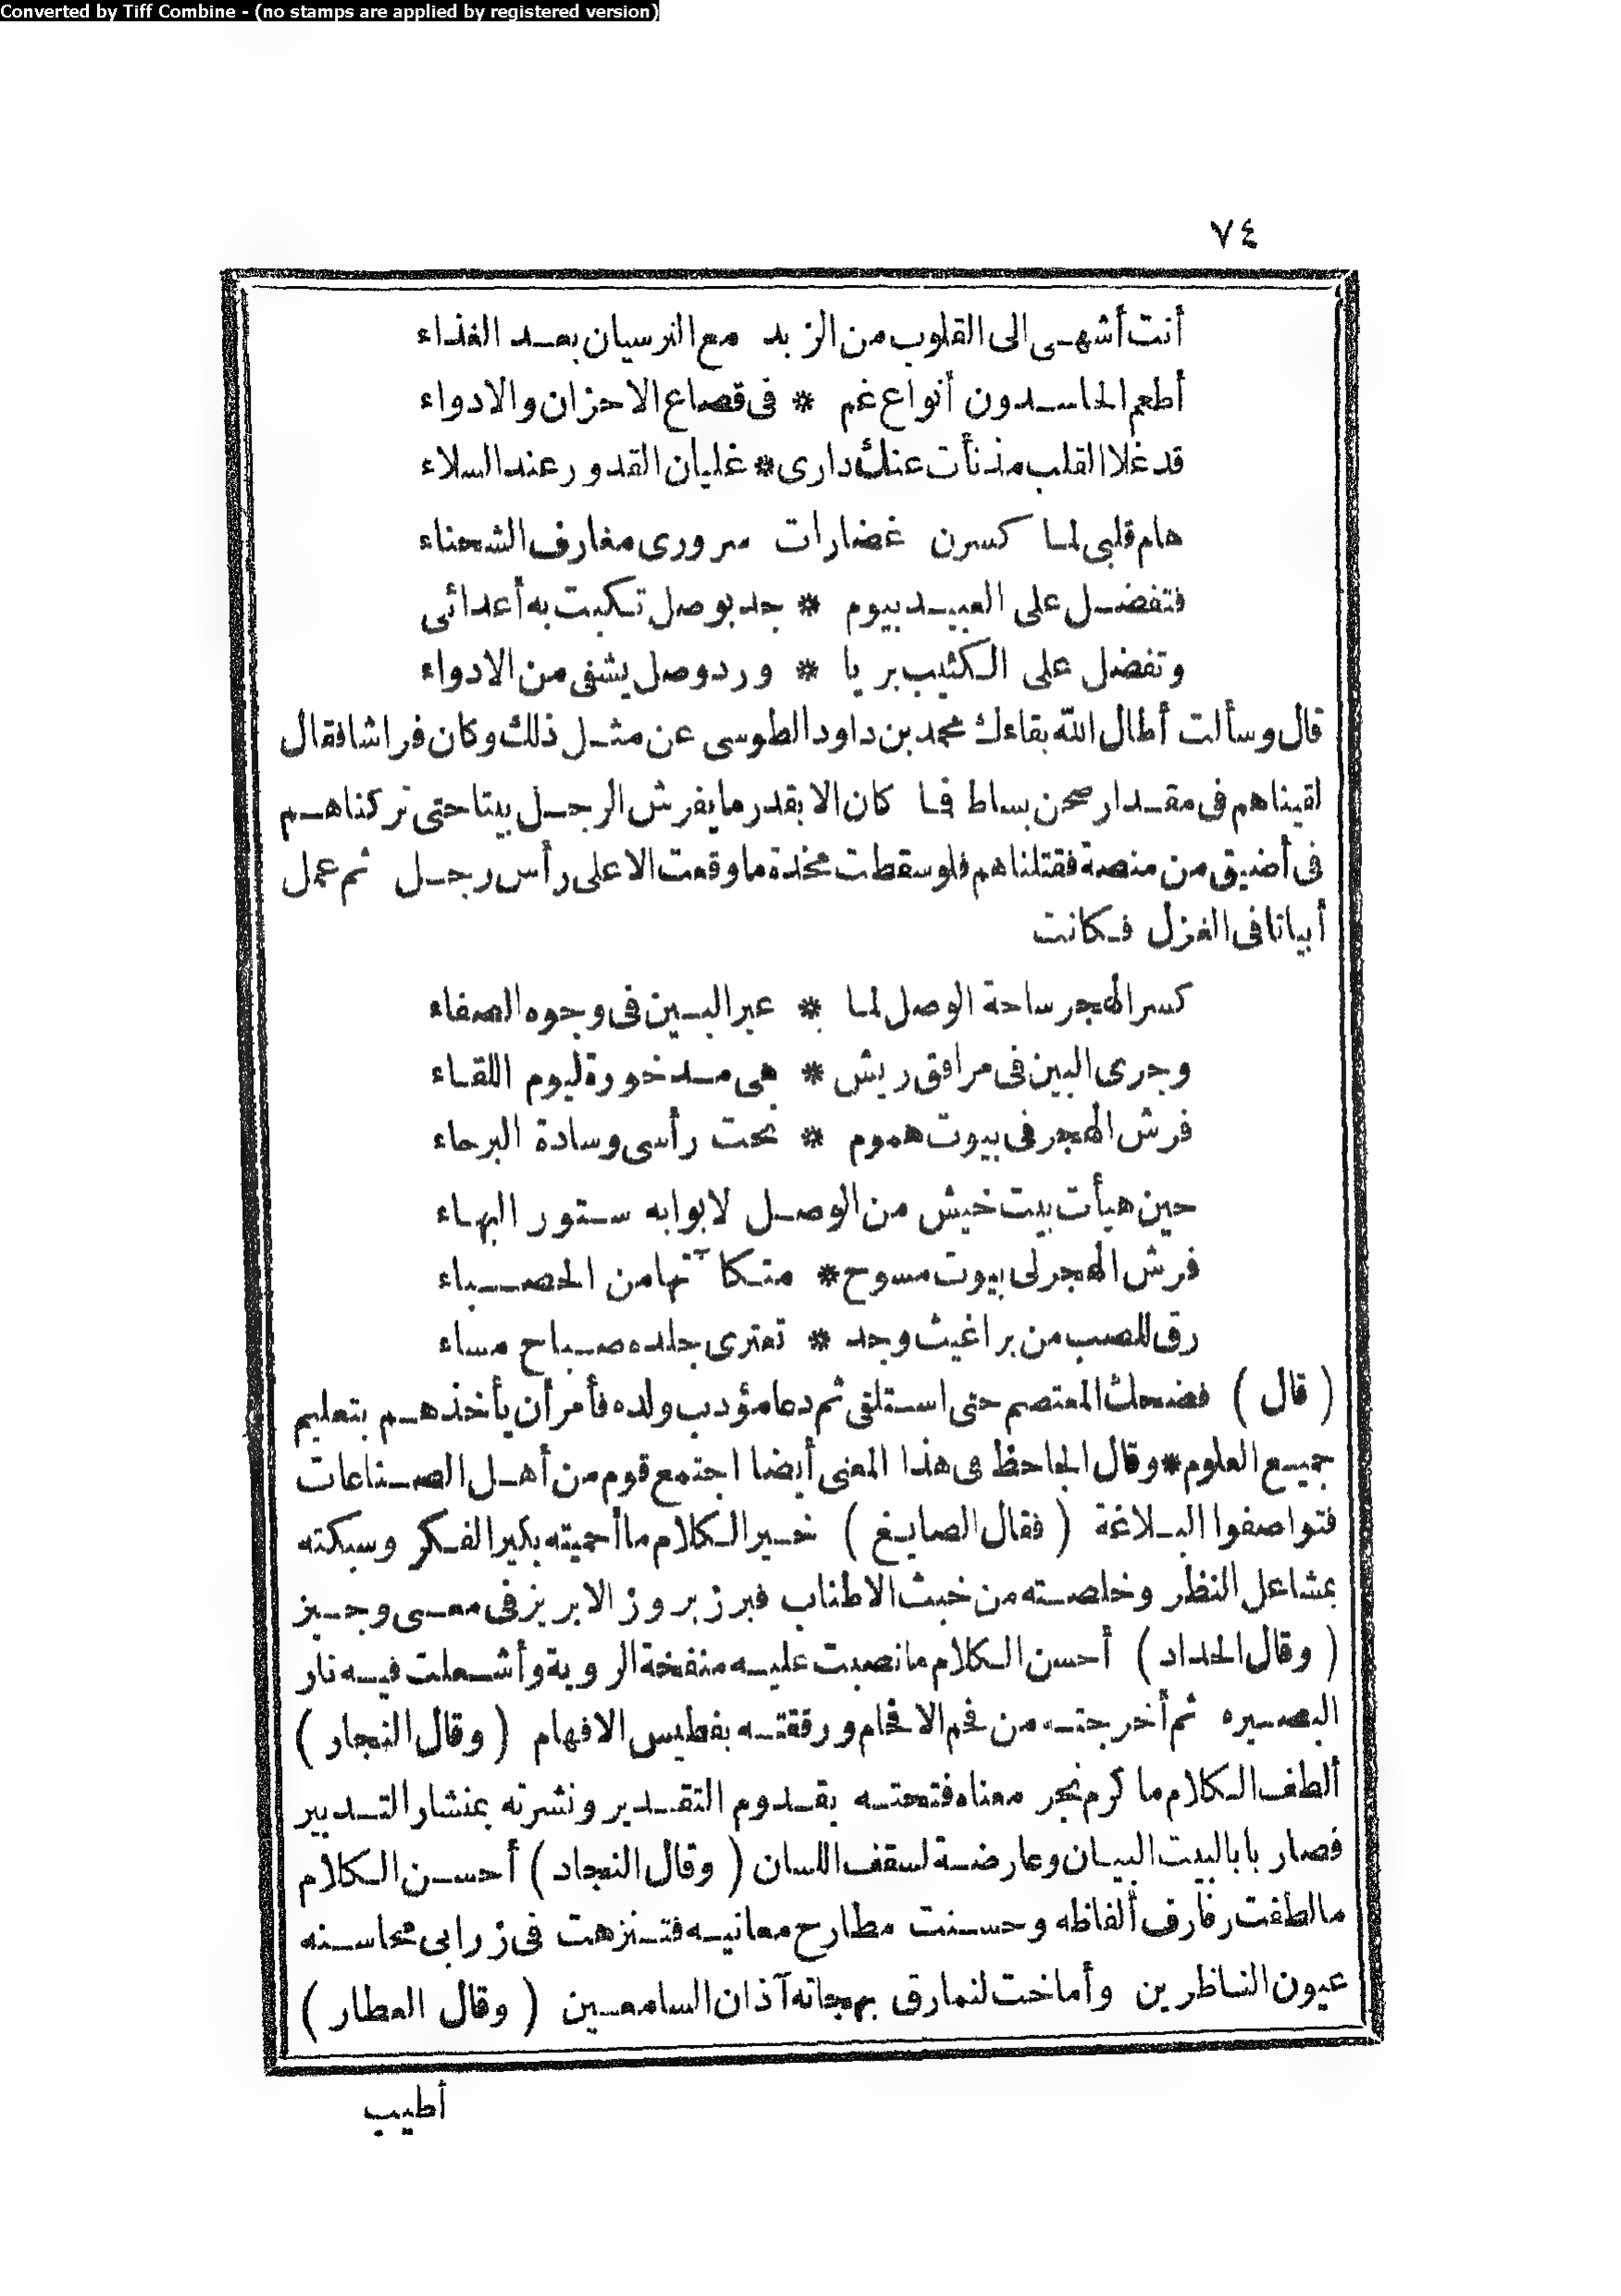 Converted by Tiff Combine - (no stamps are applied by registered version)
٧٤
أنت أشهى الى القلوب من الزبد مع النرسيان بعد الغذاء
أطعم الحاسدون أنواع غم * فى قصاع الاحزان والادواء
قد غلا القلب مذ نأت عنك دارى * غليان القدور عند السلاء
هام قلبى لما كسرن غضارات سرورى مغارف الشحناء
فتفضل على العبيد بيوم * جد بوصل تكبت به أعدائى
وتفضل على الكئيب بريا * ورد وصل يشفى من الادواء
قال وسألت أطال الله بقاءك محمد بن داود الطوسى عن مثل ذلك وكان فراشا فقال
لقيناهم فى مقدار صحن بساط فما كان الا بقدر ما يفرش الرجل بيتا حتى تركناهم
فى أضيق من منصة فقتلناهم فلو سقطت مخدة ما وقعت الا على رأس رجل ثم عمل
أبياتا فى الغزل فكانت
كسر الهجر ساحة الوصل لما * عبر البين فى وجوه الصفاء
وجرى البين فى مرافق ريش * هى مدخورة ليوم اللقاء
فرش الهجر فى بيوت هموم * تحت رأسى وسادة البرحاء
حين هيأت بيت خيش من الوصل لابوابه ستور البهاء
فرش الهجر لى بيوت مسوح * متكآتها من الحصباء
رق للصب من براغيث وجد * تعترى جلده صباح مساء
(قال) فضحك المعتصم حتى استلقى ثم دعا مؤدب ولده فأمر أن يأخذهم بتعليم
جميع العلوم * وقال الجاحظ فى هذا المعنى أيضا اجتمع قوم من أهل الصناعات
فتواصفوا البلاغة (فقال الصايغ) خير الكلام ما أحميته بكير الفكر وسبكته
بمشاعل النظر وخلصته من خبث الاطناب فبرز بروز الابريز فى معنى وجيز
(وقال الحداد) أحسن الكلام ما نصبت عليه منفخة الروية وأشعلت فيه نار
البصيره ثم أخرجته من فحم الافحام ورققته بفطيس الافهام (وقال النجار)
ألطف الكلام ما كرم نجر معناه فنحته بقدوم التقدير ونشرته بمنشار التدبير
فصار بابا لبيت البيان وعارضة لسقف اللسان (وقال النجاد) أحسن الكلام
ما لطفت رفارف ألفاظه وحسنت مطارح معانيه فتنزهت فى زرابى محاسنه
عيون الناظرين وأصاخت لنمارق بهجاته آذان السامعين (وقال العطار)
أطيب